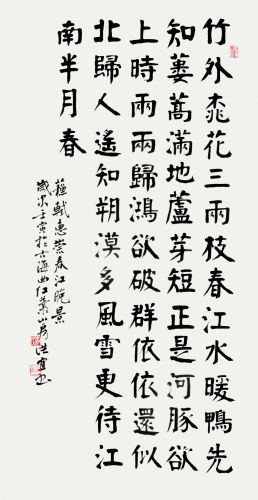 竹外桃花三兩枝春江水暖鴨先
知蔞蒿滿地蘆芽短正是河豚欲
上時兩兩歸鴻欲破群依依還似
北歸人遙知朔漠多風雪更待江
南半月春
蘇軾惠崇春江晚景
歲次壬寅於古海曲红葉山房